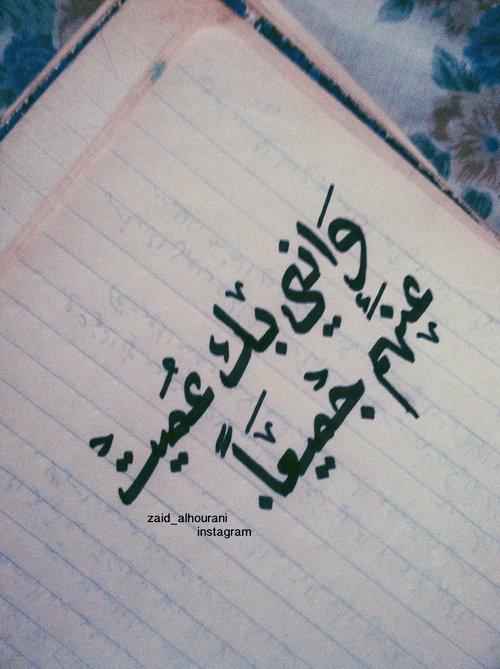 وَإني بك عُميتُ
عنهم جميعاً
zaid_alhourani
instagram